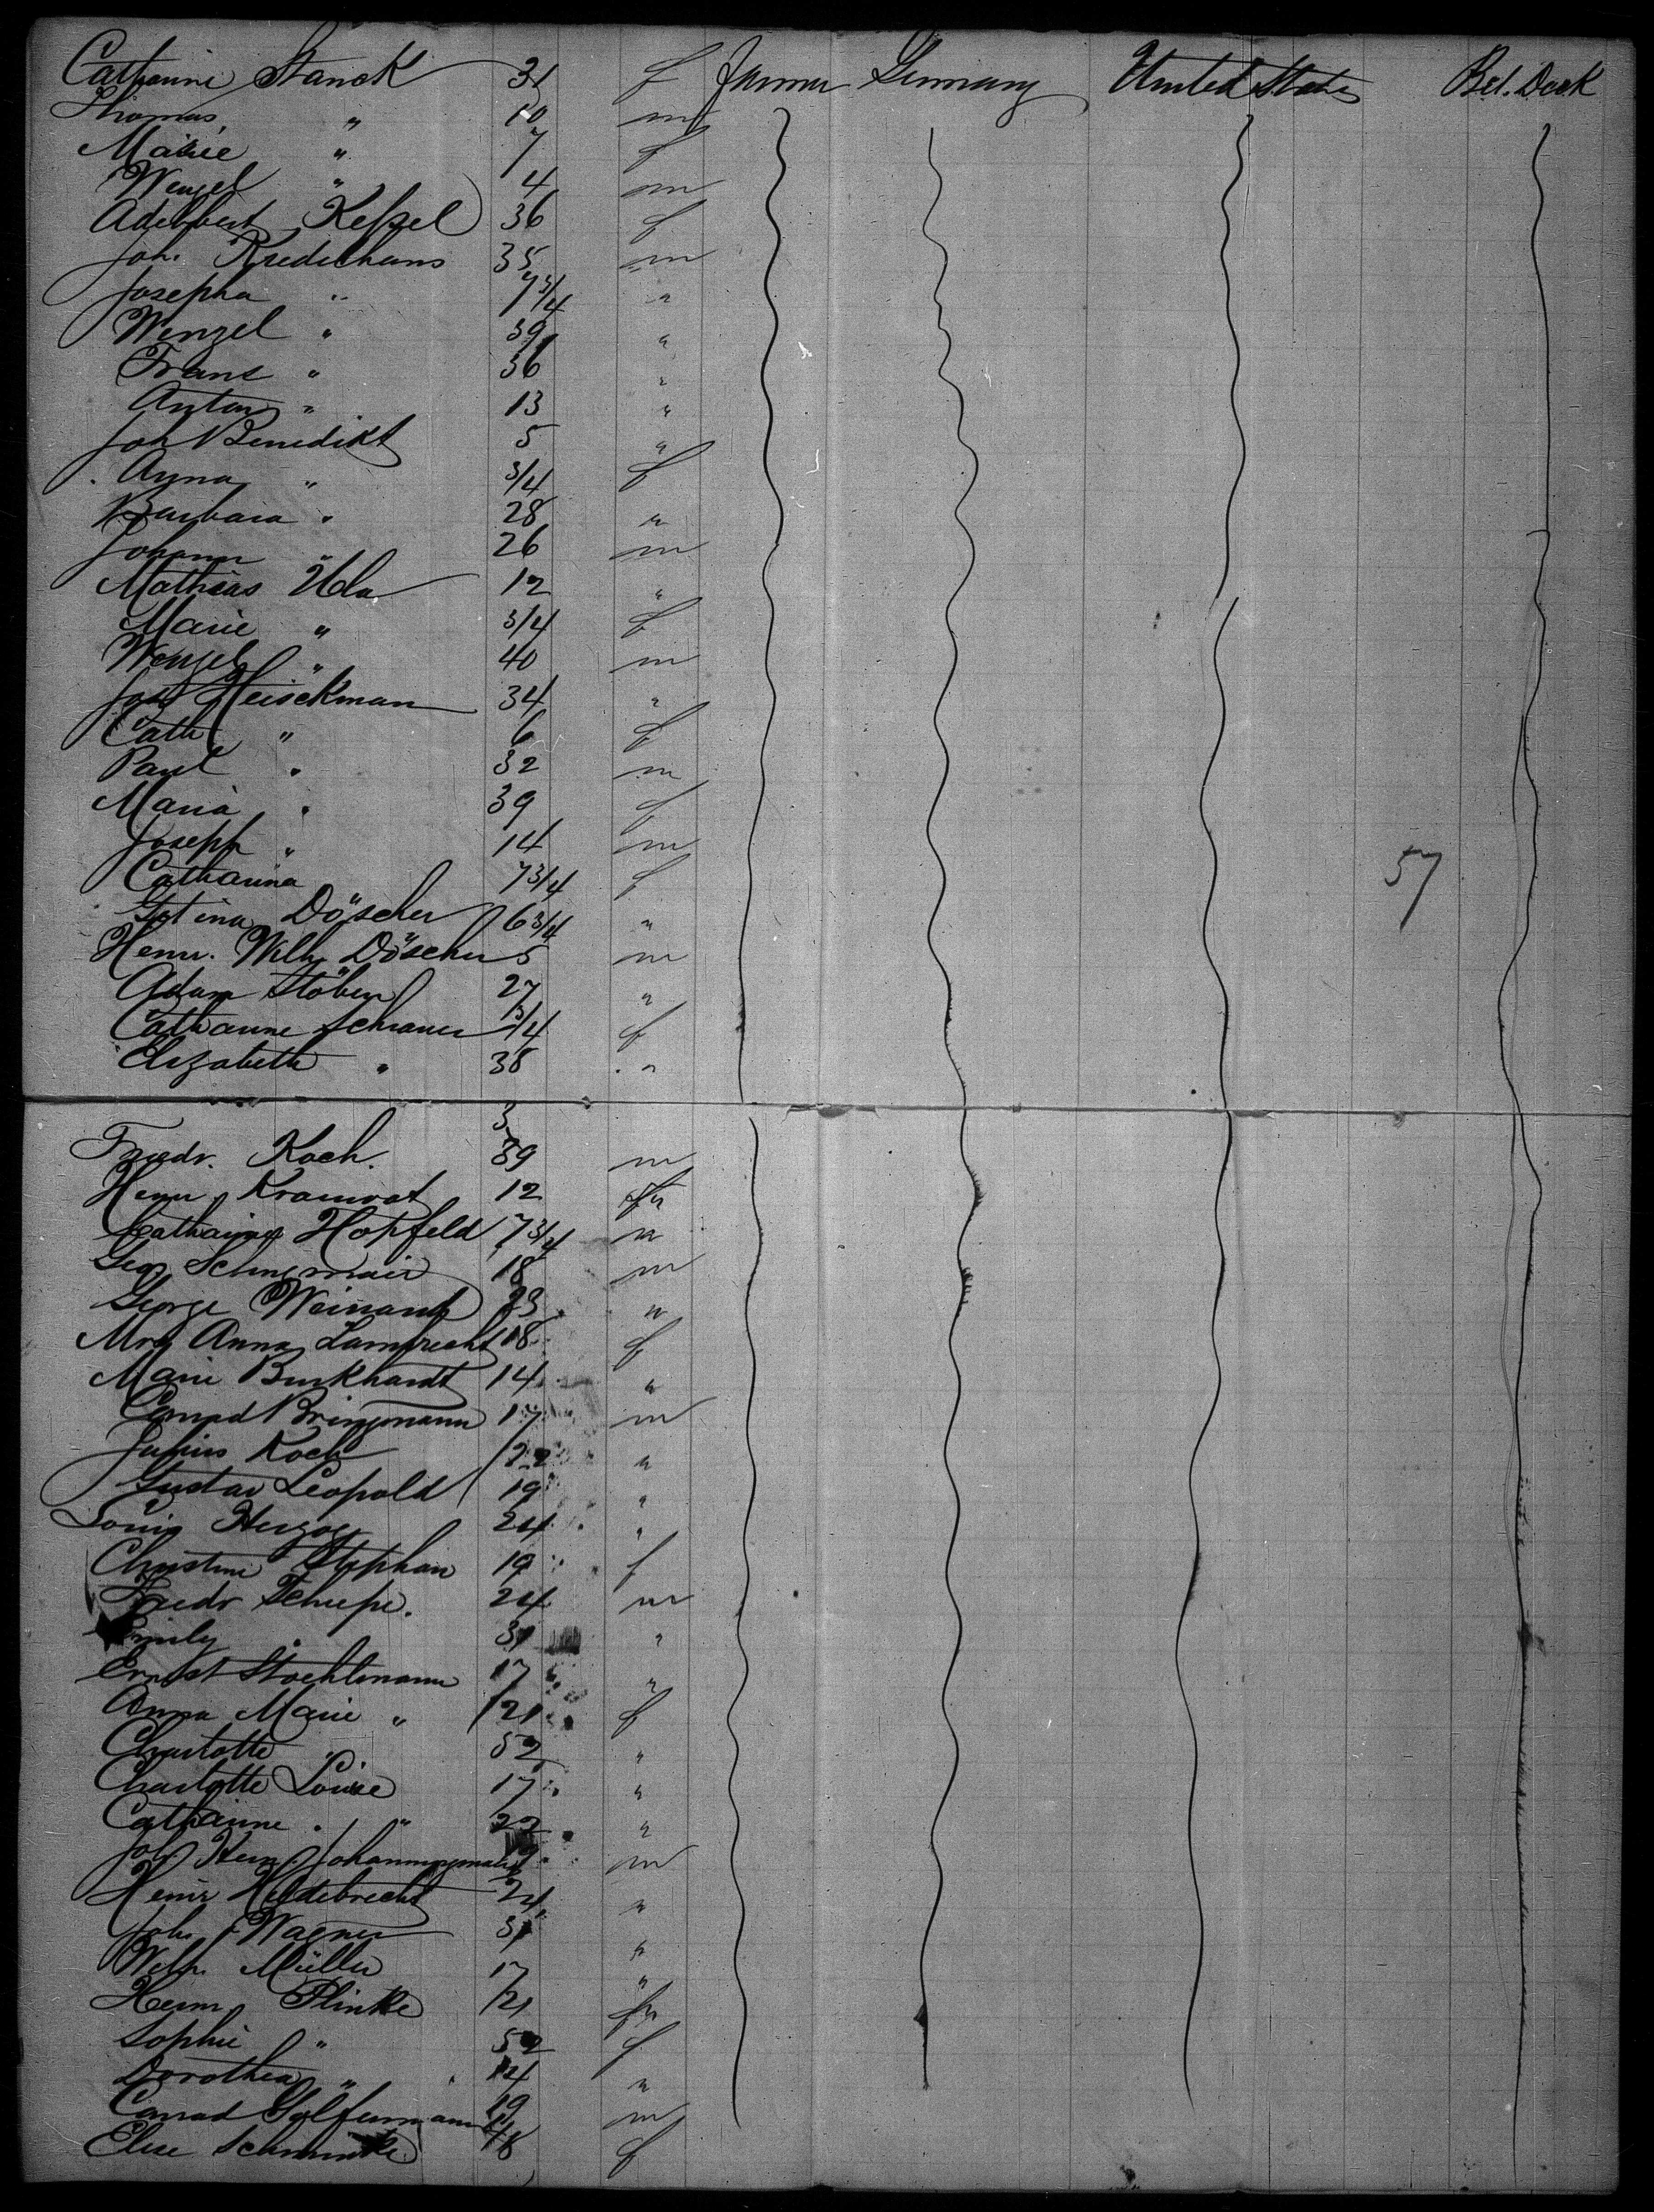 Catharine Stanck 31 f Farmer Germany United States Bet. Deck
Thomas " 10 m
Marie " 7 f
Wenzel " 4 m
Adelbert Keßel 36 f
Joh. 35 m
Josepha " 7 3/4 "
Wenzel " 39 "
Franz " 36 "
Anton " 13 "
Joh Benedikt 5 "
Anna " 3/4 f
Barbara " 28 "
Johann " 26 m
Mathias 12 "
Marie " 3/4 f
Wenzel " 40 m
Joh Heisckman 34 "
Cath " 6 f
Paul " 32 m
Maria " 39 f
Joseph " 14 m
Catharina 7 3/4 f
57
Döscher 6 3/4 "
Henr. Wilh. Döscher 5 m
Adam Stöber 27 "
Catharine 3/4 f
Elizabeth " 38 "
3
Friedr. Koch. 39 m
Henr. 12
Catharina Hopfeld 7 3/4 "
Geo. 18 m
George Weinand 23 "
Mrs Anna Lambrecht 18 f
Marie Burkhardt 14 "
Conrad Bringmann 17 m
Julius Koch 22 "
Gustav Leopold 19 "
Louis Herzog 24 "
Christine Stephan 19 f
Friedr 24 m
Emily " 31 "
Ernst 17 "
Anna Marie " 21 f
Charlotte " 52 "
Charlotte Louise 17 "
Catharine " " 22 "
Joh. Henr. m
Henr Hildebrecht "
Joh. Wagner "
Wilh. Müller 17 "
Herm Plinke 21
Sophie " 52 f
Dorothea " 14 "
Conrad 19 m
Elise 48 f